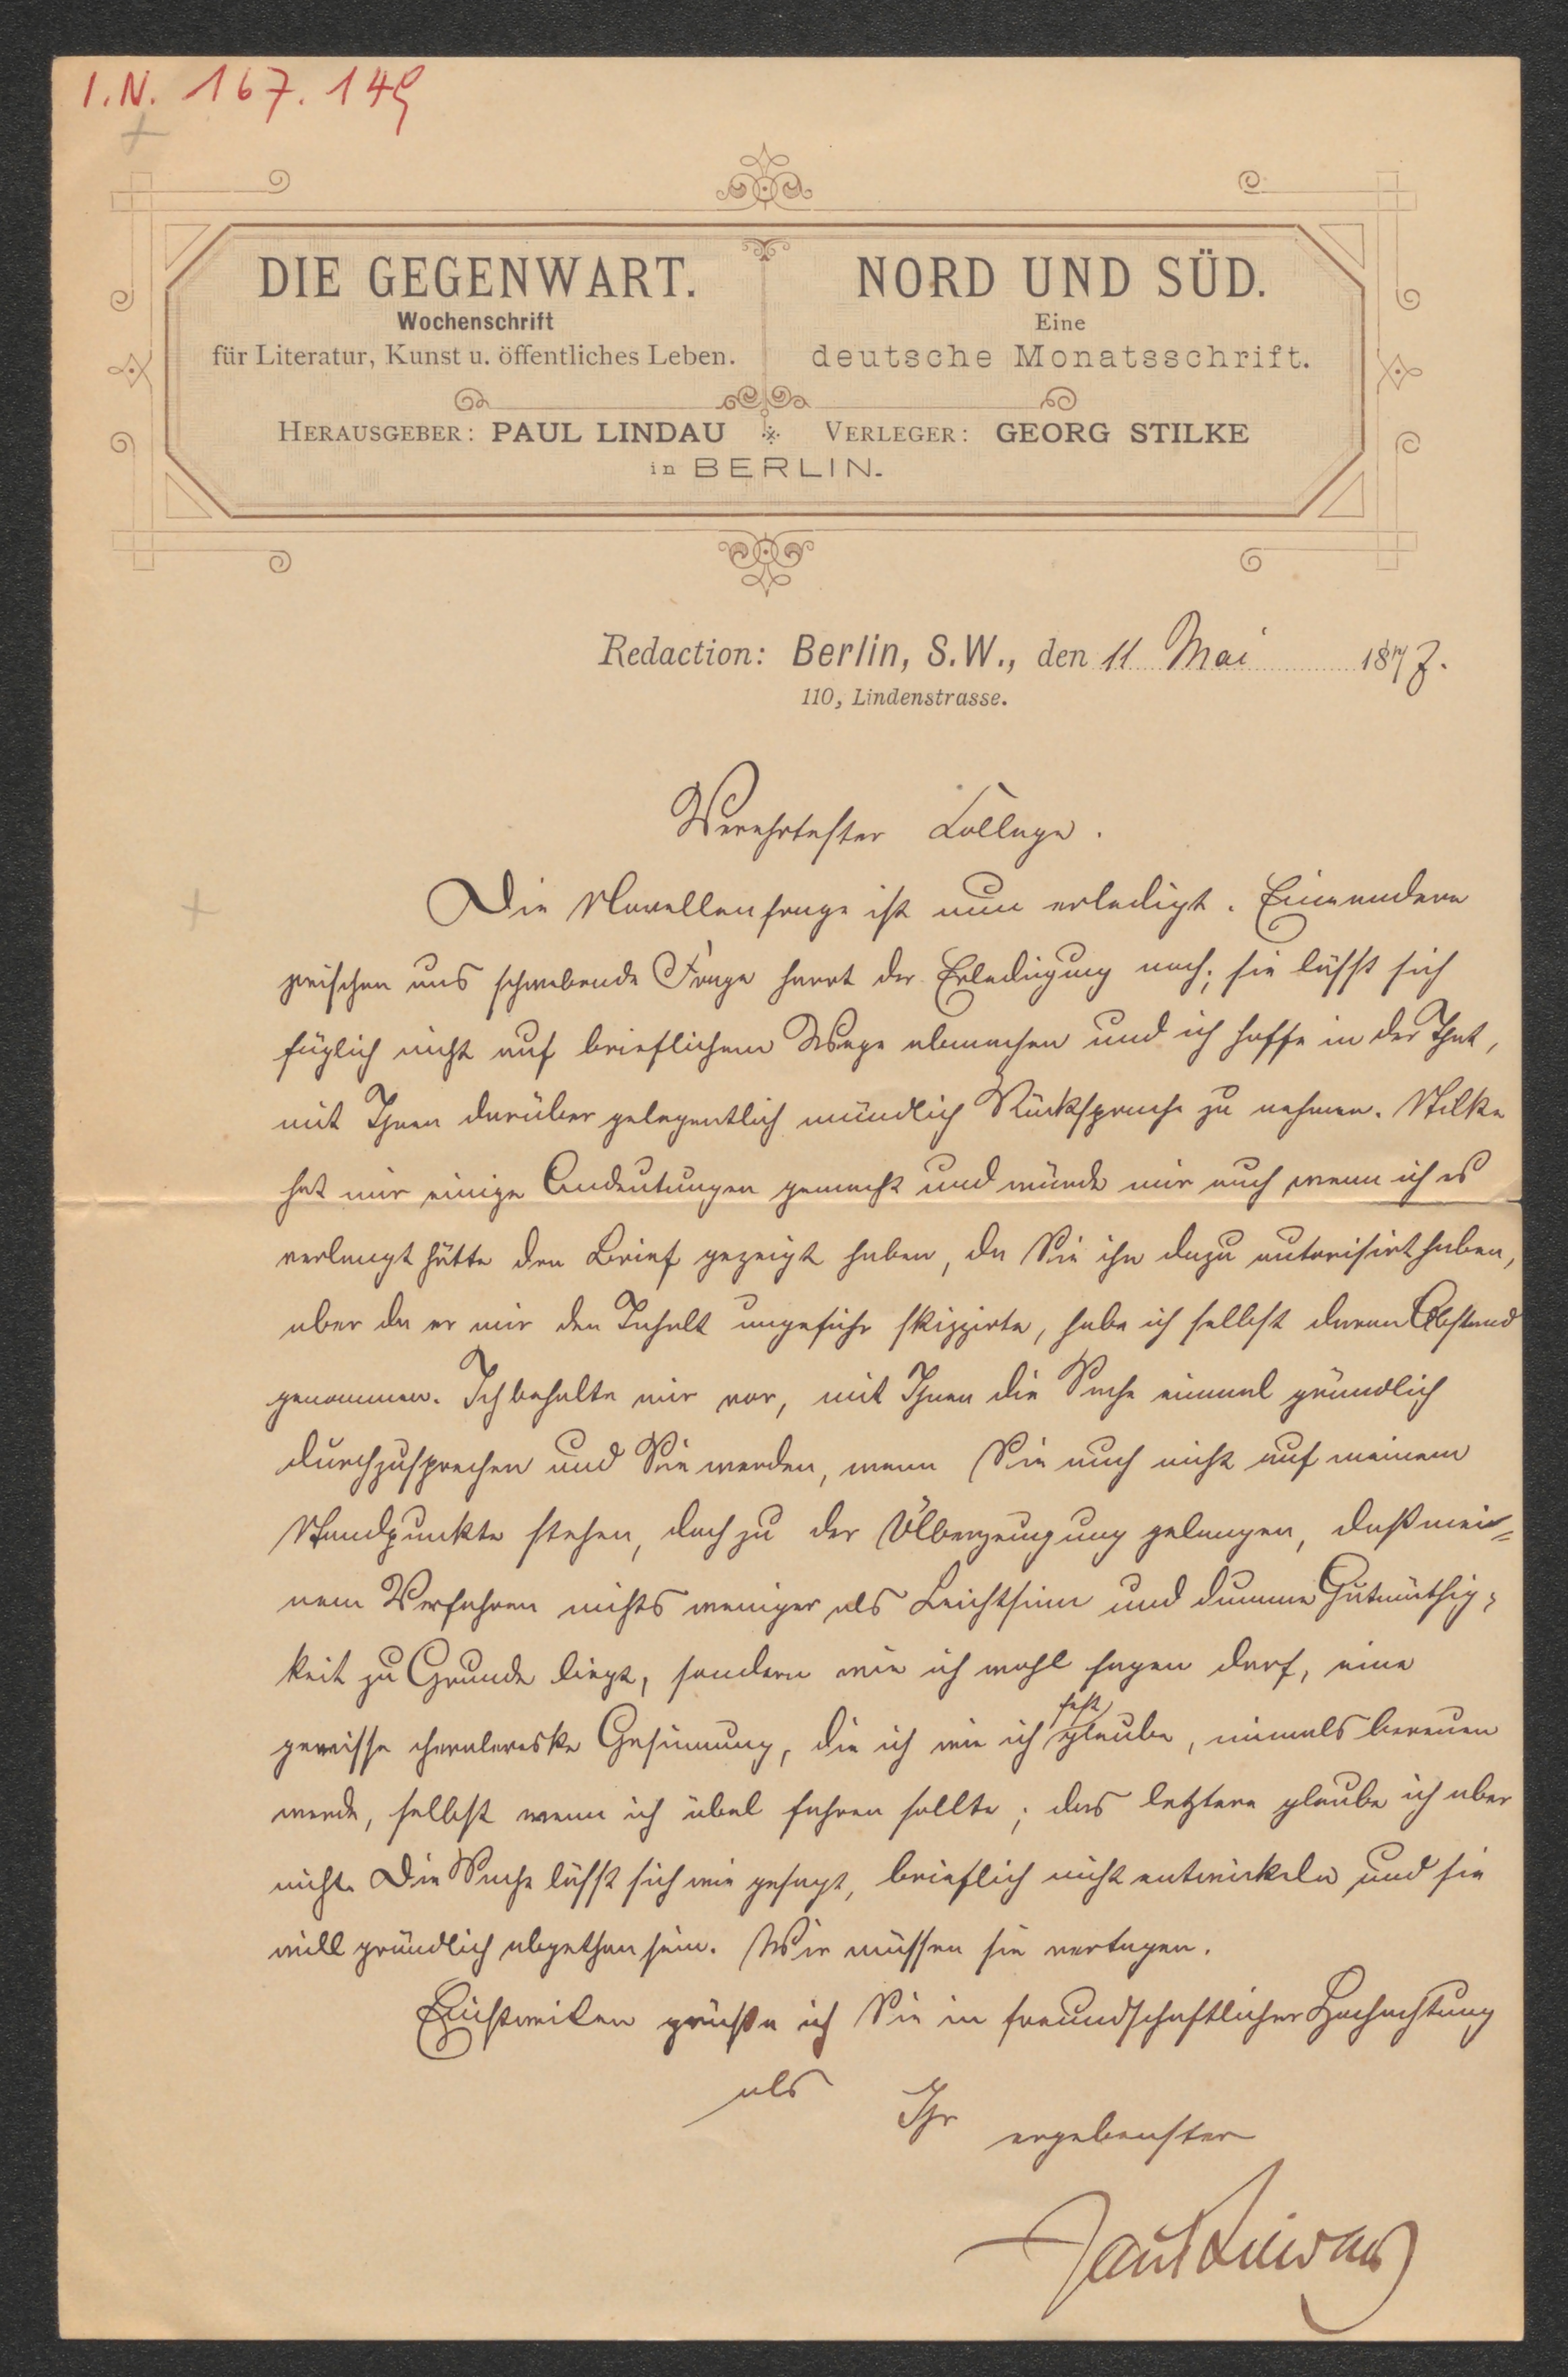 I.N. 167.149
DIE GEGENWART.
Wochenschrift
für Literatur, Kunst u. öffentliches Leben.
NORD UND SÜD.
Eine
deutsche Monatsschrift.
HERAUSGEBER: PAUL LINDAU
VERLEGER: GEORG STILKE
in BERLIN.
Redaction: Berlin, S.W., den 11 Mai 1877.
110, Lindenstrasse.
Verehrtester College.
Die Novellenfrage ist nun erledigt. Eine andere
zwischen uns schwebende Frage harrt der Erledigung noch; sie läßt sich
füglich nicht auf brieflichem Wege abmachen und ich hoffe in der That,
mit Ihnen darüber gelegentlich mündlich Rücksprache zu nehmen. Stilke
hat mir einige Andeutungen gemacht und würde mir auch wenn ich es
verlangt hätte den Brief gezeigt haben, da Sie ihn dazu autorisirt haben,
aber da er mir den Inhalt ungefähr skizzirte, habe ich selbst davon Abstand
genommen. Ich behalte mir vor, mit Ihnen die Sache einmal gründlich
durchzusprechen und Sie werden, wenn Sie auch nicht auf meinem
Standpunkte stehen, doch zu der Überzeugung gelangen, daß mei=
nem Verfahren nichts weniger als Leichtsinn und dumme Gutmüthig=
keit zu Grunde liegt, sondern wie ich wohl sagen darf, eine
gewisse chevalereske Gesinnung, die ich wie ich fest glaube, niemals bereuen
werde, selbst wenn ich übel fahren sollte; das letztere glaube ich aber
nicht. Die Sache läßt sich wie gesagt, brieflich nicht entwickeln und sie
will gründlich abgethan sein. Wir müssen sie vertagen.
Einstweilen grüße ich Sie in freundschaftlicher Hochachtung
als Ihr ergebenster
Paul Lindau